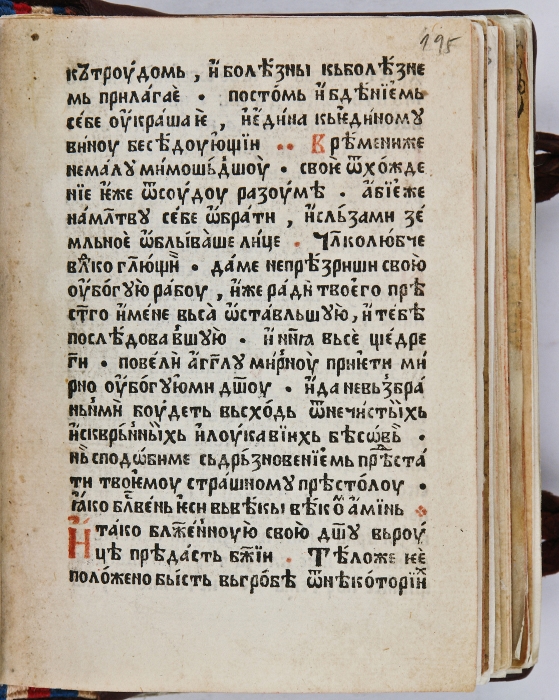 195
кꙋтроу́домь , и҆ болѣ́зны кьболѣ́зне
мь прила́гає҆ • посто́мь и҆ бдѣ́нїємь
се́бе оу҆кра́ша ѥ , и҆є҆ди́на кьѥди́номꙋ
ви́ноу бесѣ́доую҆щїи •• Врѣ́мениже
нема́лꙋ мимошь́дшоу̀ • своѥ ѿхо́жде
нїе и҆же ѿсоу́доу разоу́мѣ • а҆бїє́же
на́мл҃твꙋ се́бе ѡ҆брати , и҆сльза́ми зе́
мльноѐ ѡ҆блы́ва́ше ли́це • Чл҃колю́бче
вл҃ко гл҃ющѝ • да́ме непрѣ́зриши свою̀
оу҆бо́гꙋю ра́боу , и҆же ра́ди твоѥ́го прѣ
ст҃го и҆́мене вьса̀ ѡ҆ста́вльшꙋю, и҆ те́бѣ
послѣ́дова в́шꙋю • и҆ нн҃ꙗ вьсѐ ще́дре
г҃и • повелѝ а҆́гг҃лꙋ ми́рноу̀ прїѥти ми́
рно оу҆бо́гꙋю҆ми дш҃оу • и҆́да невьꙁбра́
ньнмѝ боу́деть вьсхо́дь ѿнечи́стыихь
и҆скврь́нныхь и҆лоу́ка вїихь бѣсѡ́вь •
нь̀ сподѡ́биме сьдрьзнове́нїємь прѣ́ста
ти твоѥмоу стра́шномꙋ прѣсто́лоу •
ꙗ҆ко бл҃ве́нь ѥ҆си вьвѣ́кы вѣ́кѡ҆ а҆ми́нь
И҆ та́ко блж҃е́нноую свою̀ дш҃ꙋ вьроу́
цѣ прѣда́сть бж҃їи • Тѣ́ложе ѥѐ
поло́жено бы́сть вьгро́бѣ ѿнѣко́торїи